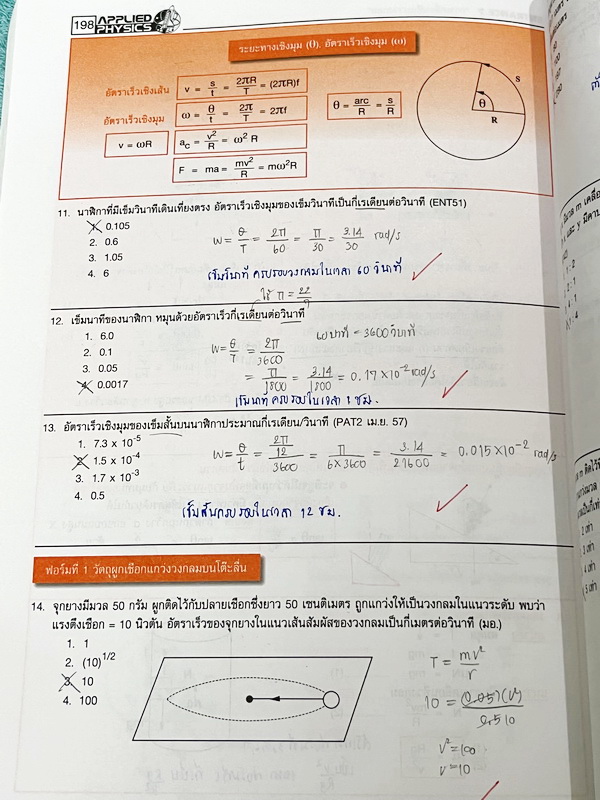 198 APPLIED PHYSICS
ระยะทางเชิงมุม (θ), อัตราเร็วเชิงมุม (ω)
อัตราเร็วเชิงเส้น v = s/t = 2πR/T = (2πR)f
อัตราเร็วเชิงมุม ω = θ/t = 2π/T = 2πf
θ = arc/R = s/R
v = ωR
a_c = v²/R = ω² R
F = ma = mv²/R = mω²R
S
θ
R
11. นาฬิกาที่มีเข็มวินาทีเดินเที่ยงตรง อัตราเร็วเชิงมุมของเข็มวินาทีเป็นกี่เรเดียนต่อวินาที (ENT51)
1. 0.105
2. 0.6
3. 1.05
4. 6
W = θ/T = 2π/60 = π/30 = 3.14/30 rad/s
เข็มวินาที ครบรอบวงกลมในเวลา 60 วินาที
ใช้ π = 22/7
12. เข็มนาทีของนาฬิกา หมุนด้วยอัตราเร็วกี่เรเดียนต่อวินาที
1. 6.0
2. 0.1
3. 0.05
4. 0.0017
60 นาที = 3600 วินาที
W = θ/T = 2π/3600
= π/1800 = 3.14/1800 = 0.17 x 10⁻² rad/s
เข็มนาที ครบรอบในเวลา 1 ชม.
13. อัตราเร็วเชิงมุมของเข็มสั้นบนนาฬิกาประมาณกี่เรเดียน/วินาที (PAT2 เม.ย. 57)
1. 7.3 x 10⁻⁵
2. 1.5 x 10⁻⁴
3. 1.7 x 10⁻³
4. 0.5
W = θ/t = 2π/12/3600 = π/6x3600 = 3.14/21600 = 0.015x10⁻² rad/s
เข็มสั้นครบรอบในเวลา 12 ชม.
ฟอร์มที่ 1 วัตถุผูกเชือกแกว่งวงกลมบนโต๊ะลื่น
14. จุกยางมีมวล 50 กรัม ผูกติดไว้กับปลายเชือกซึ่งยาว 50 เซนติเมตร ถูกแกว่งให้เป็นวงกลมในแนวระดับ พบว่า
แรงตึงเชือก = 10 นิวตัน อัตราเร็วของจุกยางในแนวเส้นสัมผัสของวงกลมเป็นกี่เมตรต่อวินาที (มอ.)
1. 1
2. (10)^1/2
3. 10
4. 100
T = mv²/r
v² = 100
v = 10